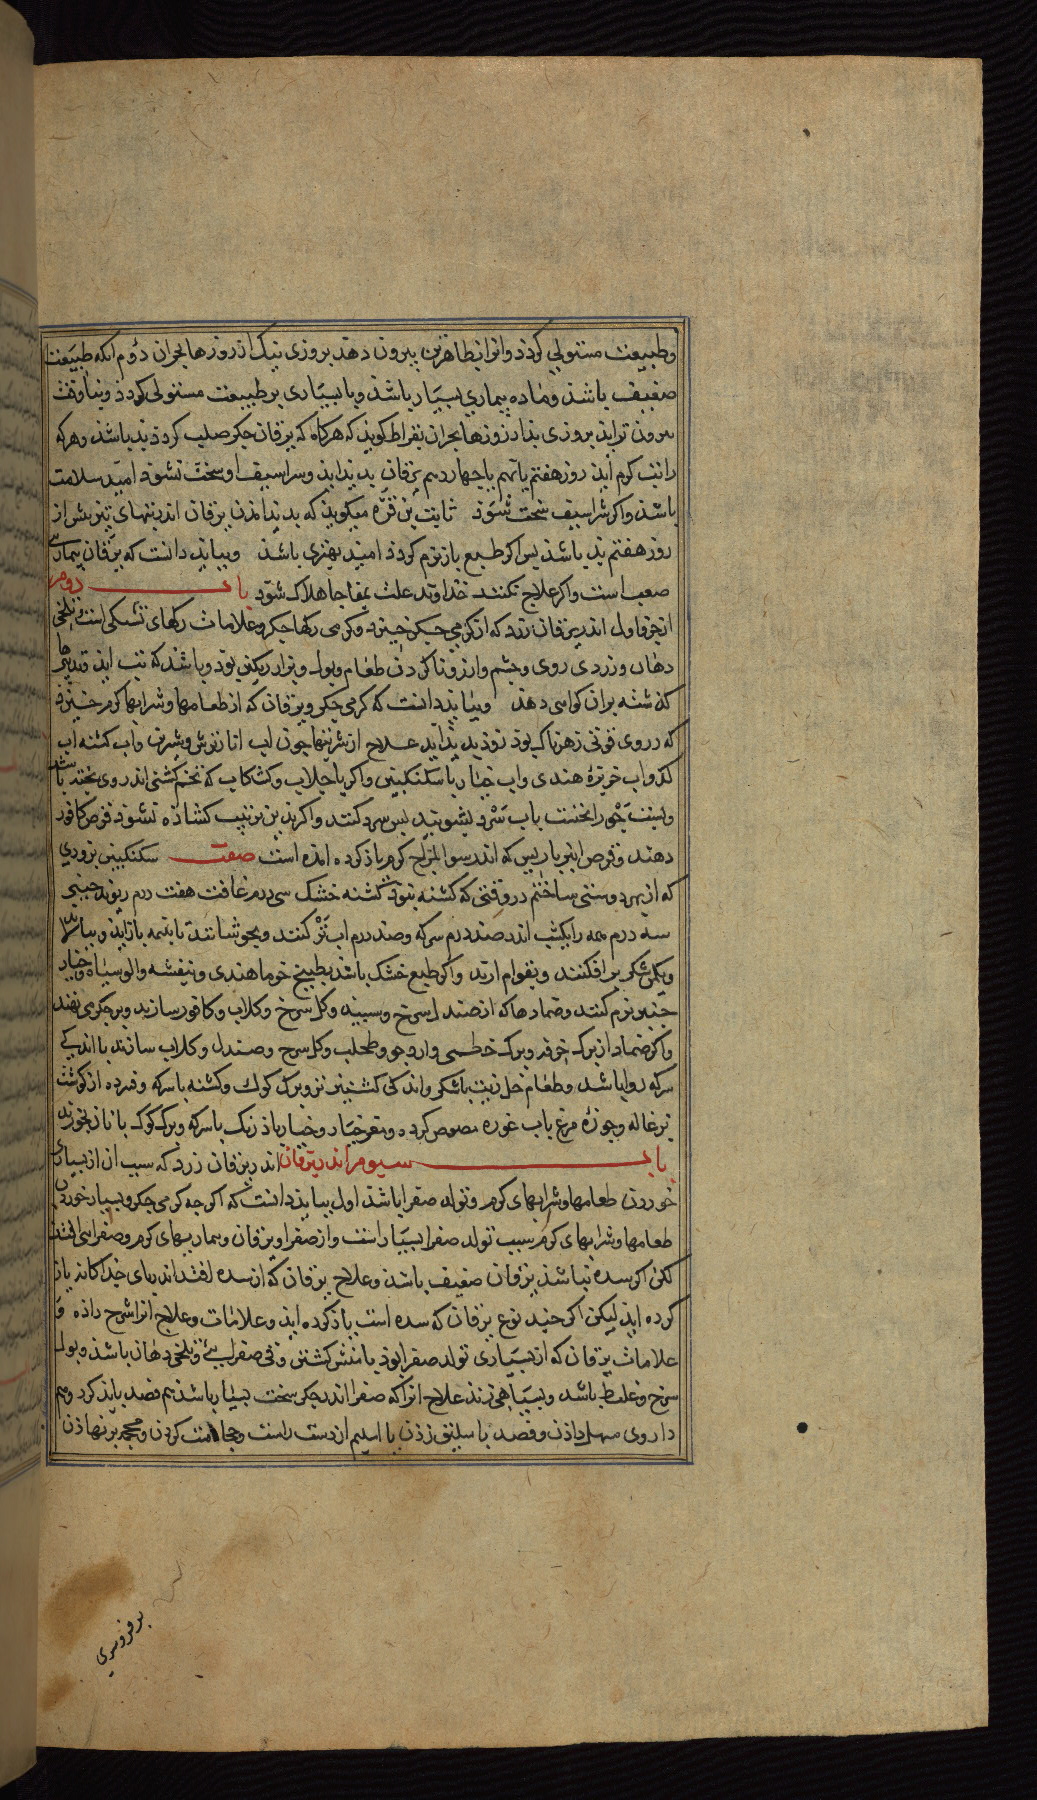 وطبیعت مستولی کردذ وانرا بظاهر تن بیرون دهد بروزی نیک از روزهاء بحران دوم انکه طبیعت
ضعیف باشذ وماده بیماری بسیار باشذ ویا بسیاری بر طبیعت مستولی کردذ وبناوقت
بیرون تراید بروزی بذ از روزهاء بحران بقراط کویذ که هرکاه که یرقان جکر صلب کردذ بد باشذ وهرکه
را تب کرم ایذ روز هفتم یا نهم یا چهاردهم یرقان بدید ایذ وسراسیف او سخت نشوذ امید سلامت
باشذ واکر شراسیف سخت شوذ ثابت بن قره میکویذ که بدید امذن یرقان اندر تبهای تیز بیش از
روز هفتم بد باشذ بس اکر طبع باز نرم کردذ امید بهتری باشذ وبباید دانست که یرقان بیماریی
صعب است واکر علاج نکنند خذاوند علت بمفاجا هلاک شوذ باب دوم
از جزو اول اندر یرقان زرد که از کرمی جکر خیزد وکرمی رکها جکر وعلامات رکهای تشنکی است وتلخی
دهان وزردی روی وچشم وارزو ناکردن طعام وبول وبراز رنکین بوذ وباشذ که تب ایذ وتدبیرهاء
کذشته بران کواهی دهد وبباید دانست که کرمی جکر ویرقان که از طعامها وشرابها کرم خیزد
که در وی قوتی زهرناک بوذ زوذ بدید ایذ علاج از شربتها چون اب انار ترش وشیرین واب کشنه اب
کدو اب خربزه هندی واب خیار با سکنکبین واکر با جلاب وکشکاب که تخم کشنی اندر وی بخته باشد
وبست جو را نخست باب سرد بشویند بس سرد کنند واکر بدین ترتیب کشاذه نشوذ قرص کافور
دهند وقرص انبرباریس که اندر سوالمزاج کرم یاذ کرده امذه است صفت سکنکبین بزوری
که از بهر دوستی ساختم در وقتی که کشنه نبوذ کشنه خشک سی درم غافت هفت درم ریوند چینی
سه درم همه را یکشب اندر صد درم سرکه وصد درم اب تر کنند وبجوشانند تا بنیمه بازاید وبپالایند
ویکمن شکر بر افکنند وبقوام ارند واکر طبع خشک باشد بطبیخ خرما هندی وبنفشه والو سیاه وخیار
چنبر نرم کنند وضمادها که از صندل سرخ وسبید وکل سرخ وکلاب وکافور سازند وبر جکر می نهند
واکر ضماد از برک خرفه وبرک خطمی وارد جو وطحلب وکل سرخ وصندل وکلاب سازند با اندکی
سرکه روا باشد وطعام خل زیت باشکر واندکی کشنیز تر وبرک کوک وکشنه باسرکه وفسرده از کوشت
بزغاله وجوزه مرغ باب غوره مصوص کرده ومغز خیار وخیار باذرنک باسرکه وبرک کوک با نان بخورند
باب سیوم اندر یرقان اندر یرقان زرد که سبب ان از بسیاری
خوردن طعامها وشرابهای کرم وتولد صفرا باشذ اول بباید دانست که اکرچه کرمی جکر وبسیار خوردن
طعامها وشرابهای کرم سبب تولد صفرا بسیار است واز صفرا ویرقان وبیماریهای کرم وصفرایی افتد
لکن اکر سده نباشذ یرقان ضعیف باشذ وعلاج یرقان که از سده افتد اندر بابی جذاکانه یاذ
کرده ایذ لیکن اکر چند نوع یرقان که سده است یاذ کرده ایذ وعلامات وعلاج انرا شرح داذه و
علامات یرقان که از بسیاری تولد صفرا بوذ یا منش کشتن وقی صفرایی وتلخی دهان باشذ وبول
سرخ وغلیظ باشد وبسیاهی زند علاج انرا که صفرا اندر جکر سخت بسیار باشذ هم فصد باید کرد وهم
داروی مسهل داذن وفصد باسلیق زذن یا اسیلم از دست راست وحجامت کردن ومحجمه برنهاذن